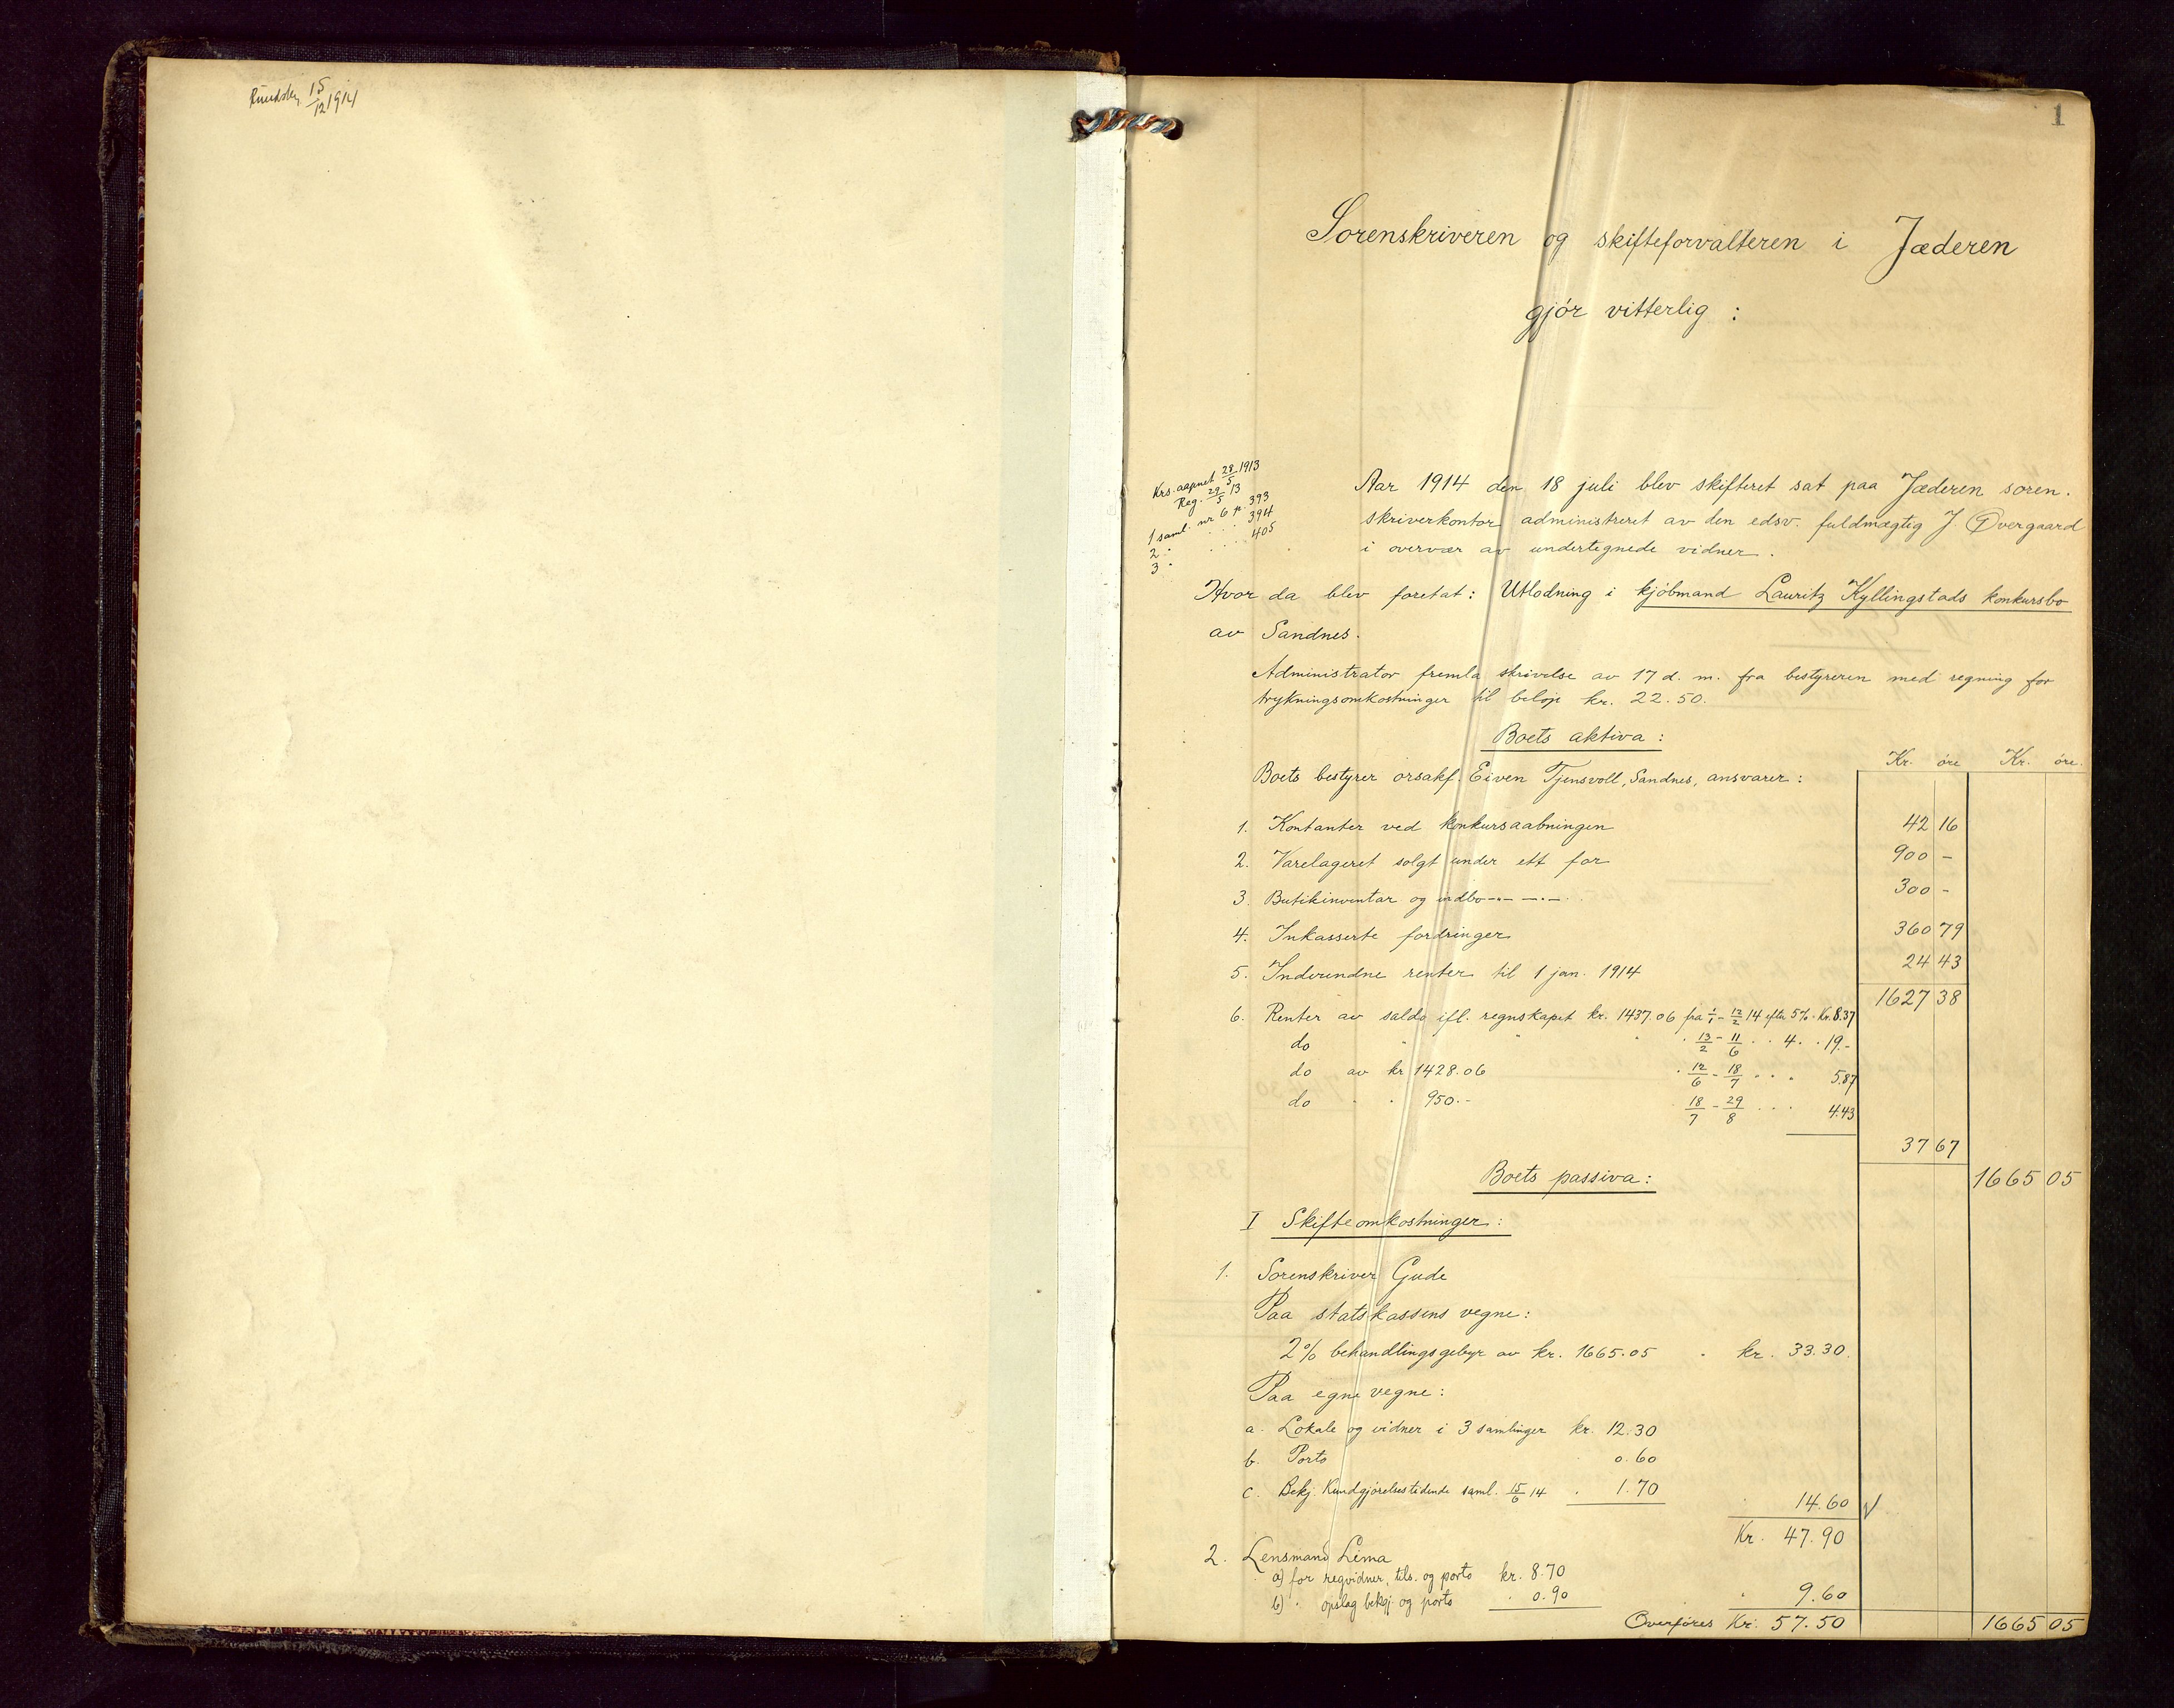 15/12 1914
1
Sorenskriveren og skifteforvalteren i Jæderen
gjör vitterlig :
Krs. aapnet 28/5 1913
Reg. 29/5 13
1 saml. nr 6 p. 393
2 " . . . 394
3 " . . . 405
Aar 1914 den 18 juli blev skifteret sat paa Jæderen soren-
skriverkontor administreret av den edsv. fuldmægtig J. Øvergaard
i overvær av undertegnede vidner.
Hvor da blev foretat: Utlodning i kjöbmand Lauritz Kyllingstads konkursbo
av Sandnes.
Administrator fremla skrivelse av 17 d. m. fra bestyreren med regning for
trykningsomkostninger til belöp kr. 22.50.
Boets aktiva :
Kr. öre Kr. öre.
Boets bestyrer orsakf. Eiven Tjensvoll, Sandnes, ansvarer :
1. Kontanter ved konkursaabningen 42 16
2. Varelageret solgt under ett for 900 -
3. Butikinventar og indbo -"- -"- 300 -
4. Inkasserte fordringer 360 79
5. Inderundne renter til 1 jan. 1914 24 43
1627 38
6. Renter av saldo ifl. regnskapet kr. 1437.06 fra 1/1 - 12/2 14 efter 5% - Kr. 8.37
do " " . 13/2 - 11/6 . . 4 . . 19.-
do av kr 1428.06 . 12/6 - 18/7 . . . 5.87
do . . 950.- 18/7 - 29/8 . . . 4.43
37 67
Boets passiva : 1665 05
I Skifteomkostninger :
1. Sorenskriver Gude
Paa statskassens vegne :
2% behandlingsgebyr av kr. 1665.05 . kr. 33.30.
Paa egne vegne :
a. Lokale og vidner i 3 samlinger kr. 12.30
b. Porto 0.60
c. Bekj. Kundgjörelsestidende saml. 15/6 14 . 1.70
14.60
Kr. 47.90
2. Lensmand Lima
a) for regvidner, tils. og porto kr. 8.70
b) " opslag bekgj. og porto . 0.90
9.60
Overföres Kr. 57.50 1665 05